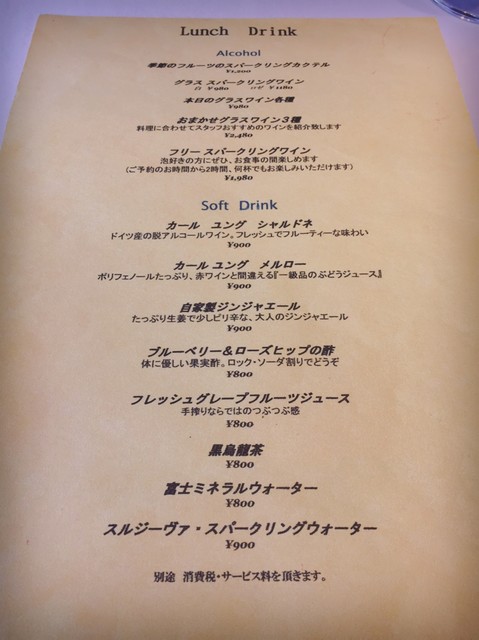 Lunch Drink
Alcohol
季節のフルーツのスパークリングカクテル
¥1,200
グラス スパークリングワイン
白 ¥980 ロゼ ¥1180
本日のグラスワイン各種
¥980
おまかせグラスワイン3種
料理に合わせてスタッフおすすめのワインを紹介致します
¥2,480
フリー スパークリングワイン
泡好きの方にぜひ、お食事の間楽しめます
(ご予約のお時間から2時間、何杯でもお楽しみいただけます)
¥1,980
Soft Drink
カール ユング シャルドネ
ドイツ産の脱アルコールワイン。フレッシュでフルーティーな味わい
¥900
カール ユング メルロー
ポリフェノールたっぷり、赤ワインと間違える『一級品のぶどうジュース』
¥900
自家製ジンジャエール
たっぷり生姜で少しピリ辛な、大人のジンジャエール
¥900
ブルーベリー&ローズヒップの酢
体に優しい果実酢。ロック・ソーダ割りでどうぞ
¥800
フレッシュグレープフルーツジュース
手搾りならではのつぶつぶ感
¥800
黒烏龍茶
¥800
富士ミネラルウォーター
¥800
スルジーヴァ・スパークリングウォーター
¥900
別途 消費税・サービス料を頂きます。